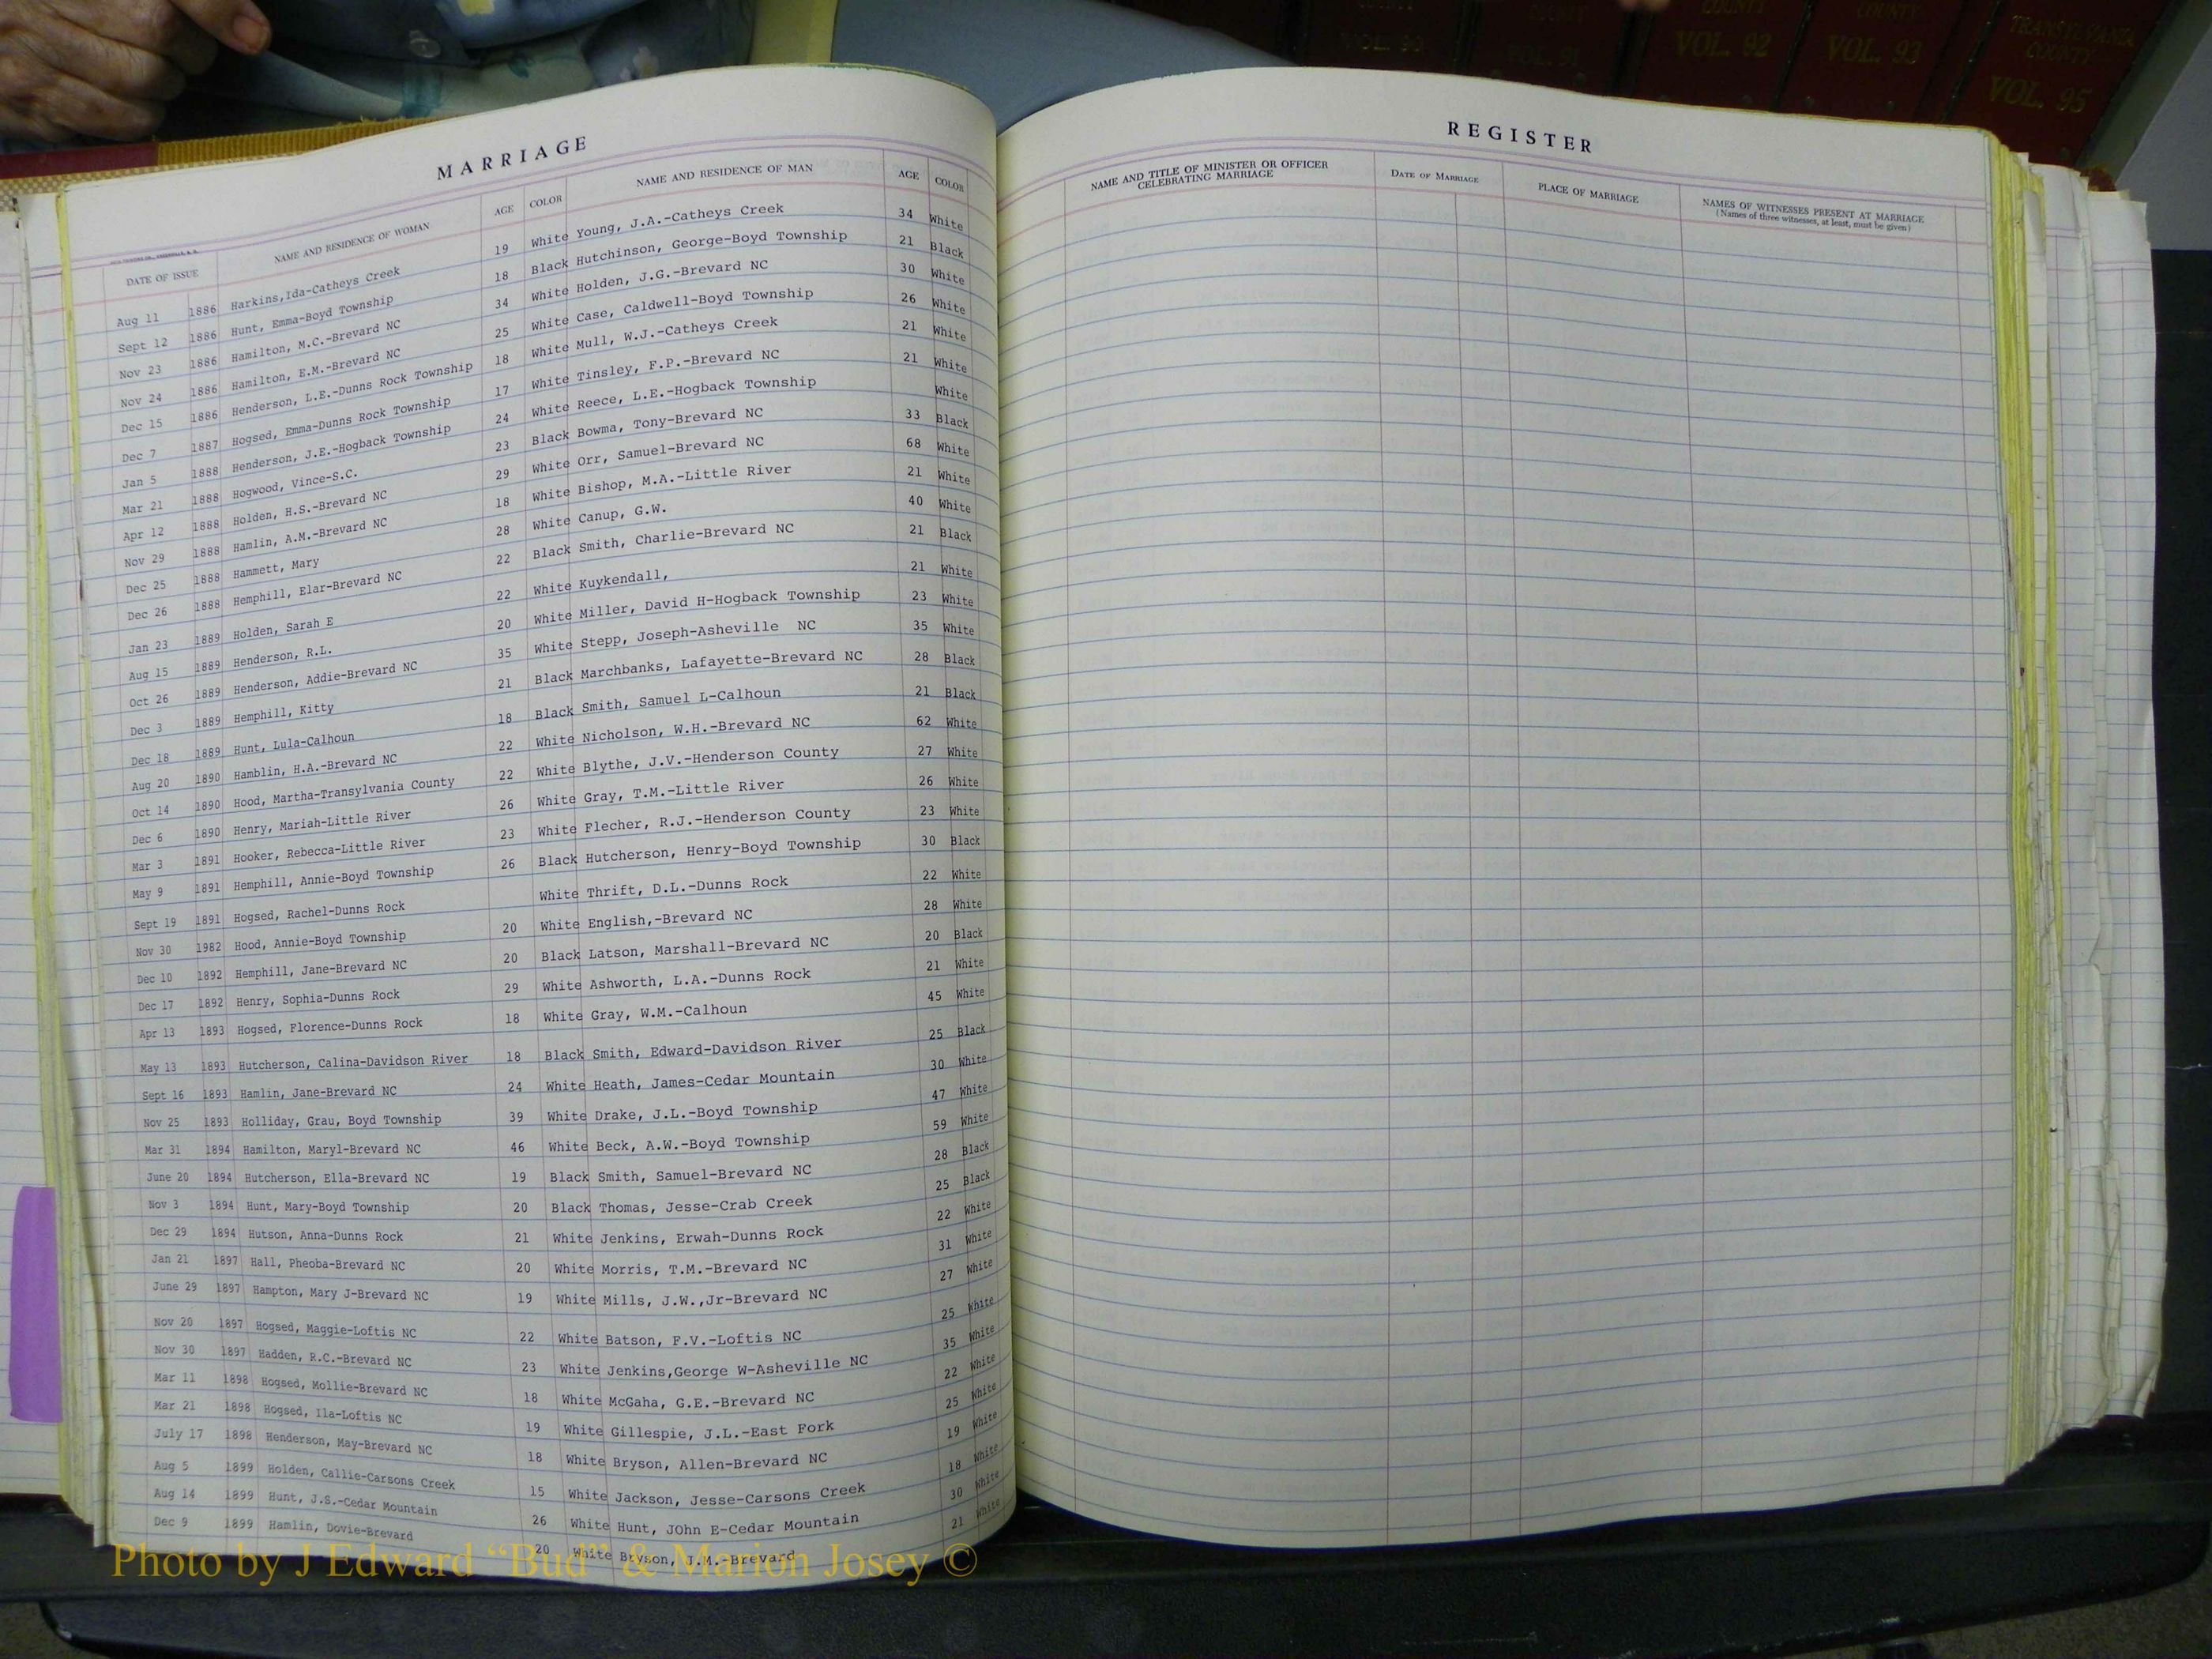 COUNTY
VOL. 90
COUNTY
VOL. 91
COUNTY
VOL. 92
COUNTY
VOL. 93
TRANSYLVANIA
COUNTY
VOL. 95
MARRIAGE
DATE OF ISSUE NAME AND RESIDENCE OF WOMAN AGE COLOR NAME AND RESIDENCE OF MAN AGE COLOR
Aug 11 1886 Harkins,Ida-Catheys Creek 19 White Young, J.A.-Catheys Creek 34 White
Sept 12 1886 Hunt, Emma-Boyd Township 18 Black Hutchinson, George-Boyd Township 21 Black
Nov 23 1886 Hamilton, M.C.-Brevard NC 34 White Holden, J.G.-Brevard NC 30 White
Nov 24 1886 Hamilton, E.M.-Brevard NC 25 White Case, Caldwell-Boyd Township 26 White
Dec 15 1886 Henderson, L.E.-Dunns Rock Township 18 White Mull, W.J.-Catheys Creek 21 White
Dec 7 1887 Hogsed, Emma-Dunns Rock Township 17 White Tinsley, F.P.-Brevard NC 21 White
Jan 5 1888 Henderson, J.E.-Hogback Township 24 White Reece, L.E.-Hogback Township White
Mar 21 1888 Hogwood, Vince-S.C. 23 Black Bowma, Tony-Brevard NC 33 Black
Apr 12 1888 Holden, H.S.-Brevard NC 29 White Orr, Samuel-Brevard NC 68 White
Nov 29 1888 Hamlin, A.M.-Brevard NC 18 White Bishop, M.A.-Little River 21 White
Dec 25 1888 Hammett, Mary 28 White Canup, G.W. 40 White
Dec 26 1888 Hemphill, Elar-Brevard NC 22 Black Smith, Charlie-Brevard NC 21 Black
Jan 23 1889 Holden, Sarah E 22 White Kuykendall, 21 White
Aug 15 1889 Henderson, R.L. 20 White Miller, David H-Hogback Township 23 White
Oct 26 1889 Henderson, Addie-Brevard NC 35 White Stepp, Joseph-Asheville NC 35 White
Dec 3 1889 Hemphill, Kitty 21 Black Marchbanks, Lafayette-Brevard NC 28 Black
Dec 18 1889 Hunt, Lula-Calhoun 18 Black Smith, Samuel L-Calhoun 21 Black
Aug 20 1890 Hamblin, H.A.-Brevard NC 22 White Nicholson, W.H.-Brevard NC 62 White
Oct 14 1890 Hood, Martha-Transylvania County 22 White Blythe, J.V.-Henderson County 27 White
Dec 6 1890 Henry, Mariah-Little River 26 White Gray, T.M.-Little River 26 White
Mar 3 1891 Hooker, Rebecca-Little River 23 White Flecher, R.J.-Henderson County 23 White
May 9 1891 Hemphill, Annie-Boyd Township 26 Black Hutcherson, Henry-Boyd Township 30 Black
Sept 19 1891 Hogsed, Rachel-Dunns Rock White Thrift, D.L.-Dunns Rock 22 White
Nov 30 1982 Hood, Annie-Boyd Township 20 White English,-Brevard NC 28 White
Dec 10 1892 Hemphill, Jane-Brevard NC 20 Black Latson, Marshall-Brevard NC 20 Black
Dec 17 1892 Henry, Sophia-Dunns Rock 29 White Ashworth, L.A.-Dunns Rock 21 White
Apr 13 1893 Hogsed, Florence-Dunns Rock 18 White Gray, W.M.-Calhoun 45 White
May 13 1893 Hutcherson, Calina-Davidson River 18 Black Smith, Edward-Davidson River 25 Black
Sept 16 1893 Hamlin, Jane-Brevard NC 24 White Heath, James-Cedar Mountain 30 White
Nov 25 1893 Holliday, Grau, Boyd Township 39 White Drake, J.L.-Boyd Township 47 White
Mar 31 1894 Hamilton, Maryl-Brevard NC 46 White Beck, A.W.-Boyd Township 59 White
June 20 1894 Hutcherson, Ella-Brevard NC 19 Black Smith, Samuel-Brevard NC 28 Black
Nov 3 1894 Hunt, Mary-Boyd Township 20 Black Thomas, Jesse-Crab Creek 25 Black
Dec 29 1894 Hutson, Anna-Dunns Rock 21 White Jenkins, Erwah-Dunns Rock 22 White
Jan 21 1897 Hall, Pheoba-Brevard NC 20 White Morris, T.M.-Brevard NC 31 White
June 29 1897 Hampton, Mary J-Brevard NC 19 White Mills, J.W.,Jr-Brevard NC 27 White
Nov 20 1897 Hogsed, Maggie-Loftis NC 22 White Batson, F.V.-Loftis NC 25 White
Nov 30 1897 Hadden, R.C.-Brevard NC 23 White Jenkins,George W-Asheville NC 35 White
Mar 11 1898 Hogsed, Mollie-Brevard NC 18 White McGaha, G.E.-Brevard NC 22 White
Mar 21 1898 Hogsed, Ila-Loftis NC 19 White Gillespie, J.L.-East Fork 25 White
July 17 1898 Henderson, May-Brevard NC 18 White Bryson, Allen-Brevard NC 19 White
Aug 5 1899 Holden, Callie-Carsons Creek 15 White Jackson, Jesse-Carsons Creek 18 White
Aug 14 1899 Hunt, J.S.-Cedar Mountain 26 White Hunt, JOhn E-Cedar Mountain 30 White
Dec 9 1899 Hamlin, Dovie-Brevard 20 White Bryson, J.M.-Brevard 21 White
REGISTER
NAME AND TITLE OF MINISTER OR OFFICER
CELEBRATING MARRIAGE
DATE OF MARRIAGE
PLACE OF MARRIAGE
NAMES OF WITNESSES PRESENT AT MARRIAGE
(Names of three witnesses, at least, must be given)
Photo by J Edward “Bud” & Marion Josey ©